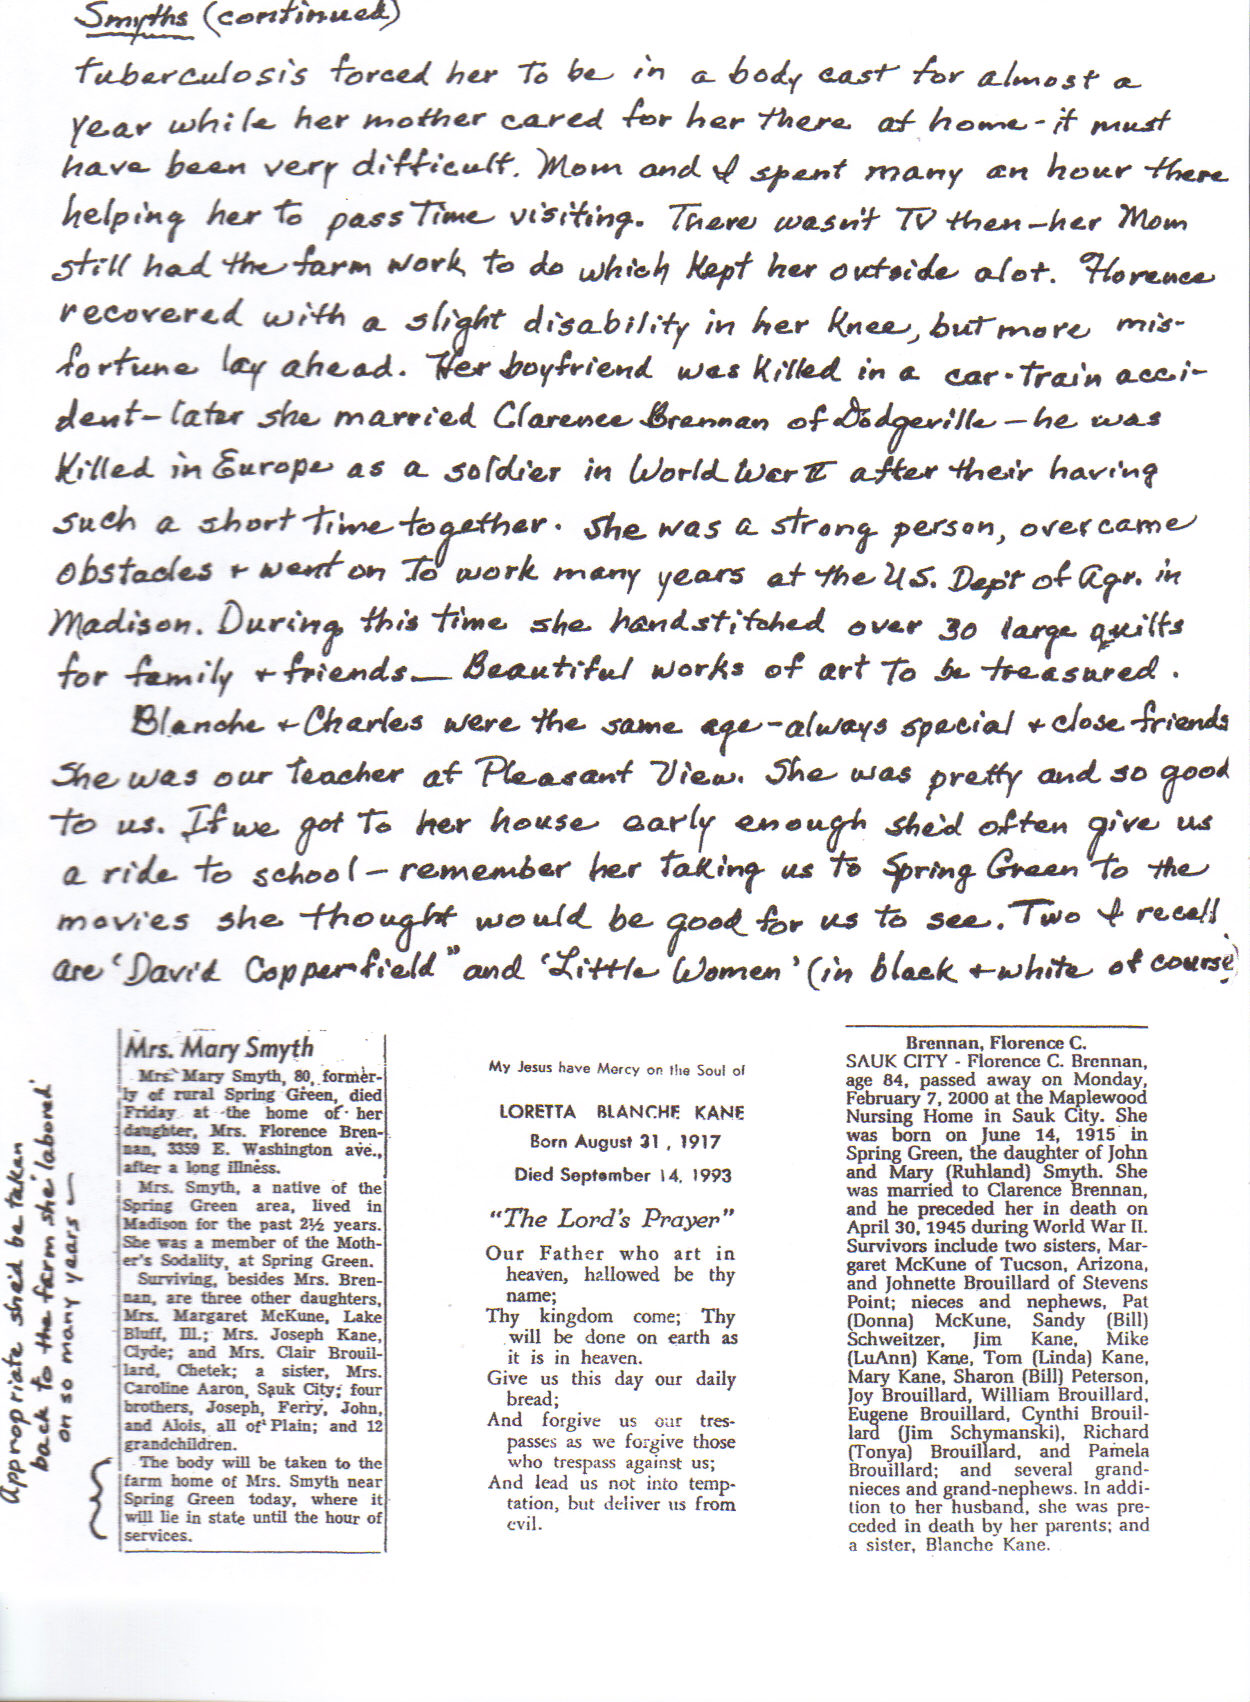 Smyths (continued)
tuberculosis forced her to be in a body cast for almost a
year while her mother cared for her there at home - it must
have been very difficult. Mom and I spent many an hour there
helping her to pass time visiting. There wasn't TV then - her Mom
still had the farm work to do which kept her outside alot. Florence
recovered with a slight disability in her knee, but more mis-
fortune lay ahead. Her boyfriend was killed in a car-train acci-
dent - later she married Clarence Brennan of Dodgeville - he was
killed in Europe as a soldier in World War II after their having
such a short time together. She was a strong person, overcame
obstacles + went on to work many years at the U.S. Dep't of Agr. in
Madison. During this time she handstitched over 30 large quilts
for family + friends - Beautiful works of art to be treasured.
Blanche + Charles were the same age - always special + close friends
She was our teacher at Pleasant View. She was pretty and so good
to us. If we got to her house early enough she'd often give us
a ride to school - remember her taking us to Spring Green to the
movies she thought would be good for us to see. Two I recall
are 'David Copperfield" and 'Little Women' (in black + white of course)
Appropriate she'd be taken
back to the farm she 'labored'
on so many years -
Mrs. Mary Smyth
Mrs. Mary Smyth, 80, former-
ly of rural Spring Green, died
Friday at the home of her
daughter, Mrs. Florence Bren-
nan, 3359 E. Washington ave.,
after a long illness.
Mrs. Smyth, a native of the
Spring Green area, lived in
Madison for the past 2½ years.
She was a member of the Moth-
er's Sodality, at Spring Green.
Surviving, besides Mrs. Bren-
nan, are three other daughters,
Mrs. Margaret McKune, Lake
Bluff, Ill.; Mrs. Joseph Kane,
Clyde; and Mrs. Clair Brouil-
lard, Chetek; a sister, Mrs.
Caroline Aaron, Sauk City; four
brothers, Joseph, Ferry, John,
and Alois, all of Plain; and 12
grandchildren.
The body will be taken to the
farm home of Mrs. Smyth near
Spring Green today, where it
will lie in state until the hour of
services.
My Jesus have Mercy on the Soul of
LORETTA BLANCHE KANE
Born August 31, 1917
Died September 14, 1993
"The Lord's Prayer"
Our Father who art in
heaven, hallowed be thy
name;
Thy kingdom come; Thy
will be done on earth as
it is in heaven.
Give us this day our daily
bread;
And forgive us our tres-
passes as we forgive those
who trespass against us;
And lead us not into temp-
tation, but deliver us from
evil.
Brennan, Florence C.
SAUK CITY - Florence C. Brennan,
age 84, passed away on Monday,
February 7, 2000 at the Maplewood
Nursing Home in Sauk City. She
was born on June 14, 1915 in
Spring Green, the daughter of John
and Mary (Ruhland) Smyth. She
was married to Clarence Brennan,
and he preceded her in death on
April 30, 1945 during World War II.
Survivors include two sisters, Mar-
garet McKune of Tucson, Arizona,
and Johnette Brouillard of Stevens
Point; nieces and nephews, Pat
(Donna) McKune, Sandy (Bill)
Schweitzer, Jim Kane, Mike
(LuAnn) Kane, Tom (Linda) Kane,
Mary Kane, Sharon (Bill) Peterson,
Joy Brouillard, William Brouillard,
Eugene Brouillard, Cynthi Brouil-
lard (Jim Schymanski), Richard
(Tonya) Brouillard, and Pamela
Brouillard; and several grand-
nieces and grand-nephews. In addi-
tion to her husband, she was pre-
ceded in death by her parents; and
a sister, Blanche Kane.